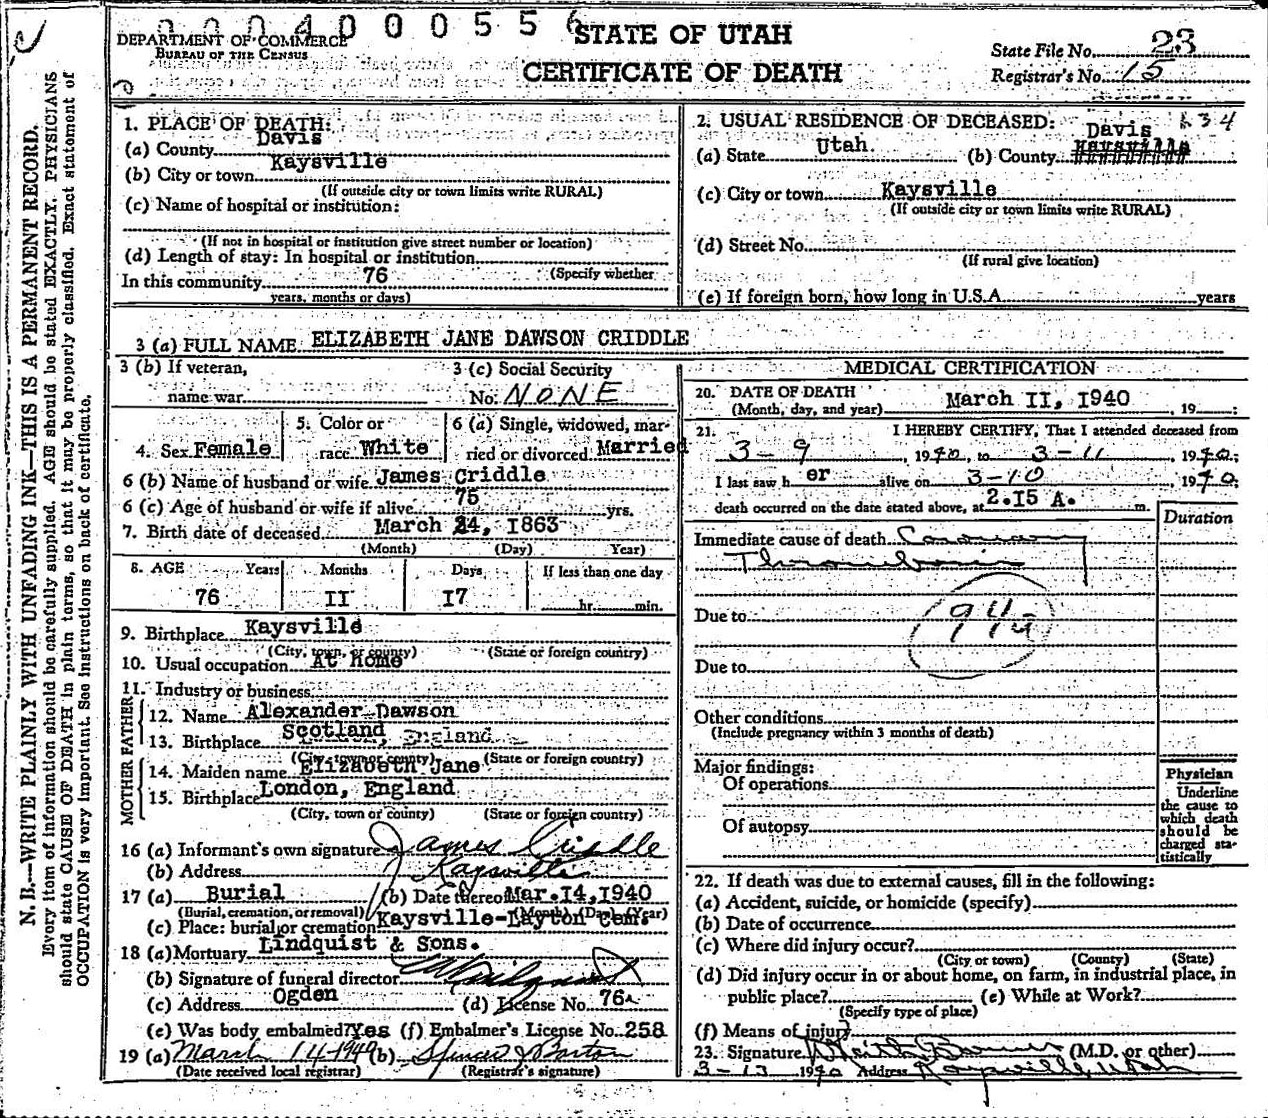 0004000556
DEPARTMENT OF COMMERCE
BUREAU OF THE CENSUS
STATE OF UTAH
CERTIFICATE OF DEATH
State File No. 23
Registrar's No. 15
N. B.—WRITE PLAINLY WITH UNFADING INK—THIS IS A PERMANENT RECORD.
Every item of information should be carefully supplied. AGE should be stated EXACTLY. PHYSICIANS
should state CAUSE OF DEATH in plain terms, so that it may be properly classified. Exact statement of
OCCUPATION is very important. See instructions on back of certificate.
1. PLACE OF DEATH:
(a) County Davis
(b) City or town Kaysville
(If outside city or town limits write RURAL)
(c) Name of hospital or institution:
(If not in hospital or institution give street number or location)
(d) Length of stay: In hospital or institution
(Specify whether
In this community 76
years, months or days)
2. USUAL RESIDENCE OF DECEASED: 634
(a) State Utah. (b) County Davis
(c) City or town Kaysville
(If outside city or town limits write RURAL)
(d) Street No.
(If rural give location)
(e) If foreign born, how long in U.S.A. years
3 (a) FULL NAME ELIZABETH JANE DAWSON CRIDDLE
3 (b) If veteran,
name war
3 (c) Social Security
No. NONE
4. Sex Female
5. Color or
race White
6 (a) Single, widowed, mar-
ried or divorced Married
6 (b) Name of husband or wife James Criddle
6 (c) Age of husband or wife if alive 75 yrs.
7. Birth date of deceased March 24, I863
(Month) (Day) Year)
8. AGE Years Months Days If less than one day
76 II I7 hr. min.
9. Birthplace Kaysville
(City, town, or county) (State or foreign country)
10. Usual occupation At Home
11. Industry or business
FATHER
12. Name Alexander Dawson
13. Birthplace Scotland, England
(City, town or county) (State or foreign country)
MOTHER
14. Maiden name Elizabeth Jane
15. Birthplace London, England
(City, town or county) (State or foreign country)
16 (a) Informant's own signature James Criddle
(b) Address Kaysville
17 (a) Burial (b) Date thereof Mar. I4, I940
(Burial, cremation, or removal) (Month) (Day) (Year)
(c) Place: burial or cremation Kaysville-Layton Cem.
18 (a) Mortuary Lindquist & Sons.
(b) Signature of funeral director
(c) Address Ogden (d) License No. 76
(e) Was body embalmed? Yes (f) Embalmer's License No. 258
19 (a) March 14-1940 (b) Spencer J Barton
(Date received local registrar) (Registrar's signature)
MEDICAL CERTIFICATION
20. DATE OF DEATH
(Month, day, and year) March II, I940, 19 ;
21. I HEREBY CERTIFY, That I attended deceased from
3-9, 1940, to 3-11, 1940;
I last saw her alive on 3-10 1940;
death occurred on the date stated above, at 2.I5 A. m.
Duration
Immediate cause of death Coronary
Thrombosis
Due to
94a
Due to
Other conditions
(Include pregnancy within 3 months of death)
Major findings:
Of operations
Of autopsy
Physician
Underline
the cause to
which death
should be
charged sta-
tistically
22. If death was due to external causes, fill in the following:
(a) Accident, suicide, or homicide (specify)
(b) Date of occurrence
(c) Where did injury occur?
(City or town) (County) (State)
(d) Did injury occur in or about home, on farm, in industrial place, in
public place? (e) While at Work?
(Specify type of place)
(f) Means of injury
23. Signature (M.D. or other)
3-13 1940 Address Kaysville, Utah